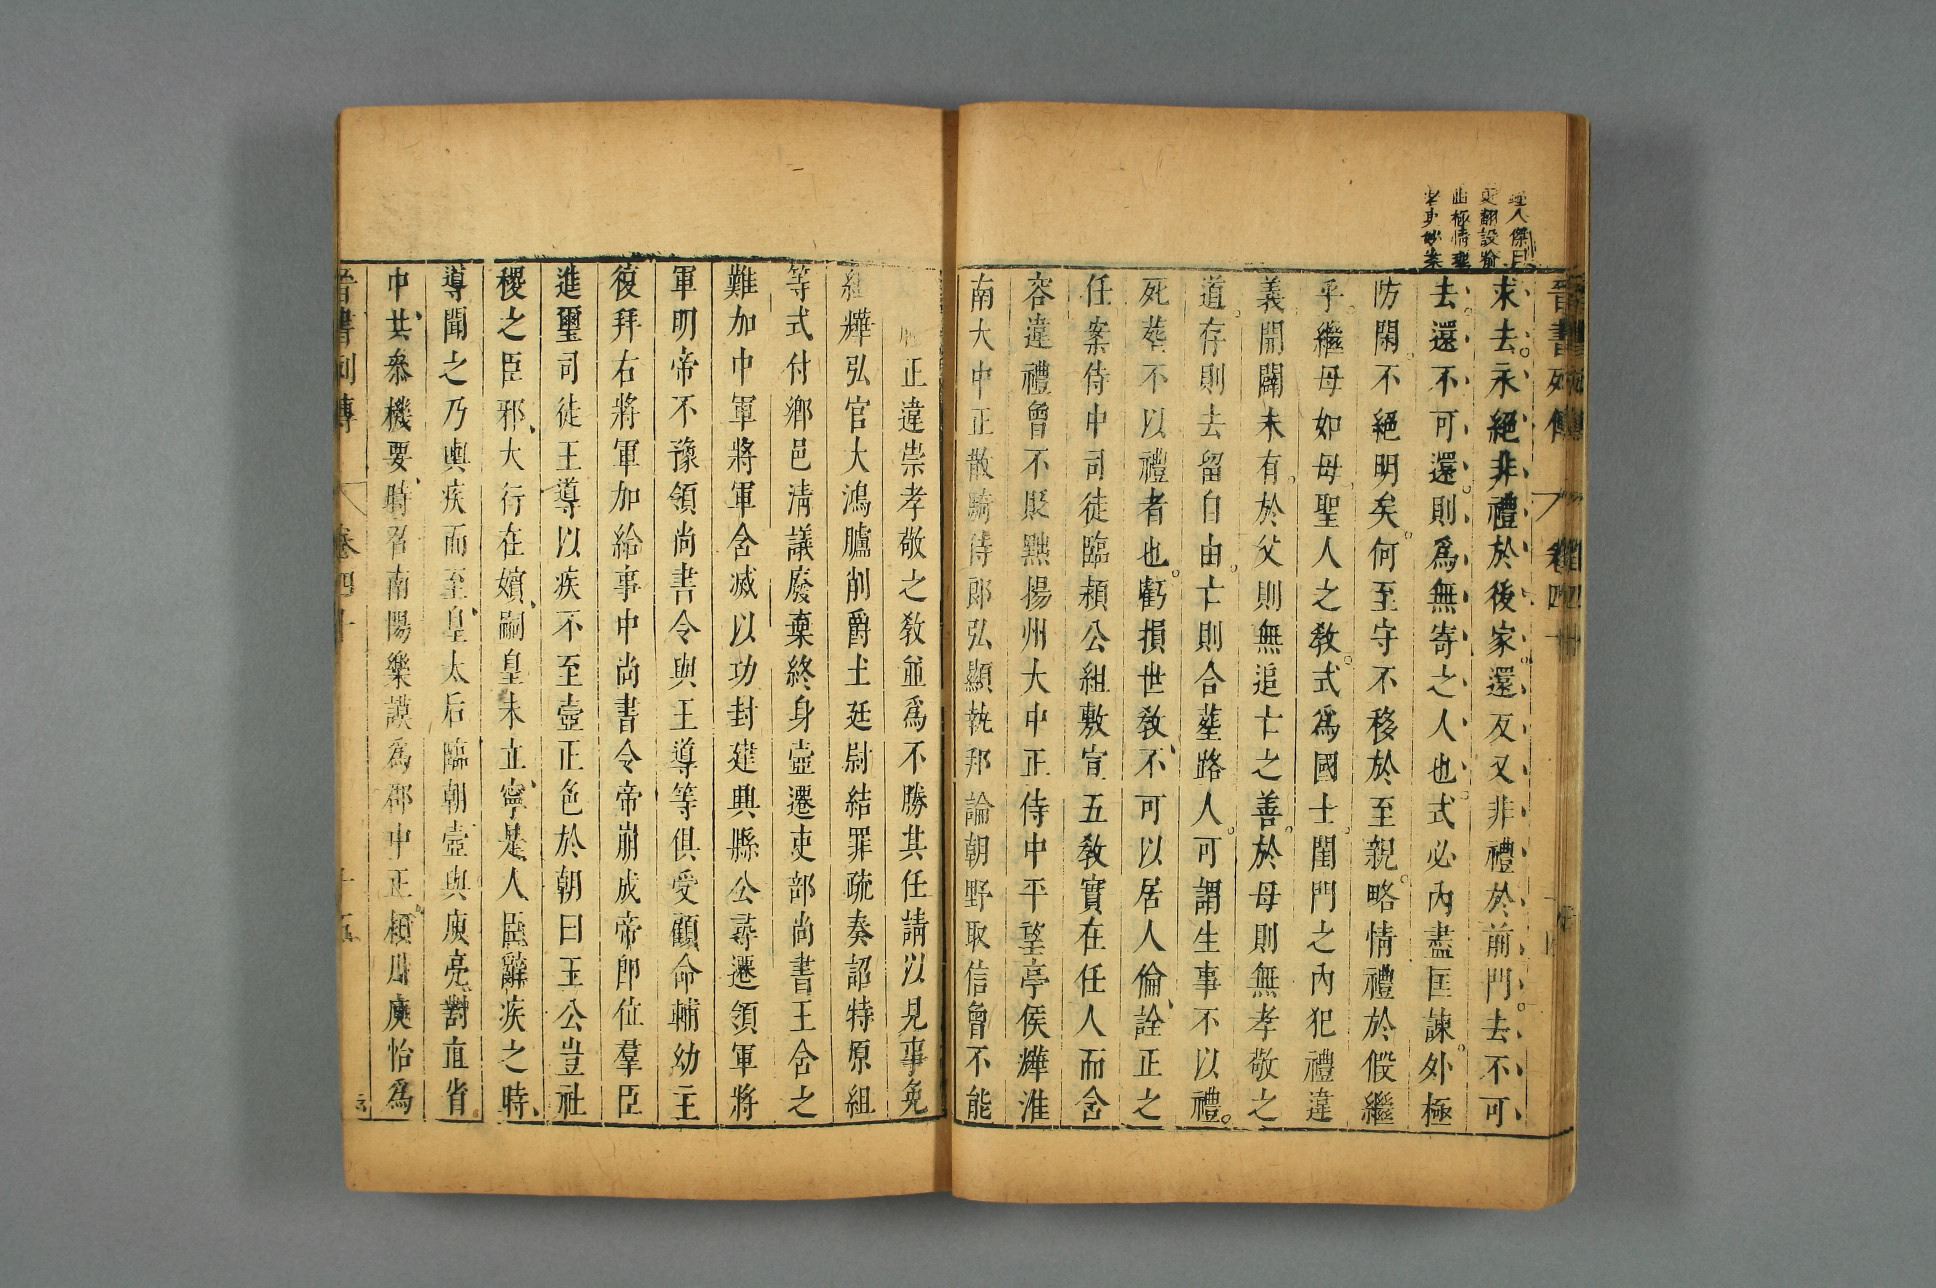 人傑曰
更翻設喻
曲極情理
老吏妙案
求去求絕非禮於後家還反又非禮於前門去不可
去還不可還則爲無寄之人也式必內盡匡諫外極
防閑不絕明矣何至守不移於至親略情禮於假繼
乎繼母如母聖人之教式爲國士閨門之內犯禮違
義開闢未有於父則無追亡之善於母則無孝敬之
道存則去留自由亡則合葬路人可謂生事不以禮
死葬不以禮者也虧損世教不可以居人倫詮正之
任案侍中司徒臨潁公組敷宣五教實在任人而含
容違禮曾不貶黜揚州大中正侍中平望亭侯燁淮
南大中正散騎侍郎弘顯執邦論朝野取信曾不能
正違崇孝敬之教並爲不勝其任請以見事免
組燁弘官大鴻臚削爵土廷尉結罪疏奏詔特原組
等式付鄉邑清議廢棄終身壼遷吏部尚書王含之
難加中軍將軍含滅以功封建興縣公尋遷領軍將
軍明帝不豫領尚書令與王導等俱受顧命輔幼主
復拜右將軍加給事中尚書令帝崩成帝即位羣臣
進璽司徒王導以疾不至壼正色於朝曰王公豈社
稷之臣邪大行在殯嗣皇未立寧是人臣辭疾之時
導聞之乃輿疾而至皇太后臨朝壼與庾亮對直省
中共叅機要時召南陽樂謨爲郡中正潁川庾怡爲
晉書列傳 卷四十 十五